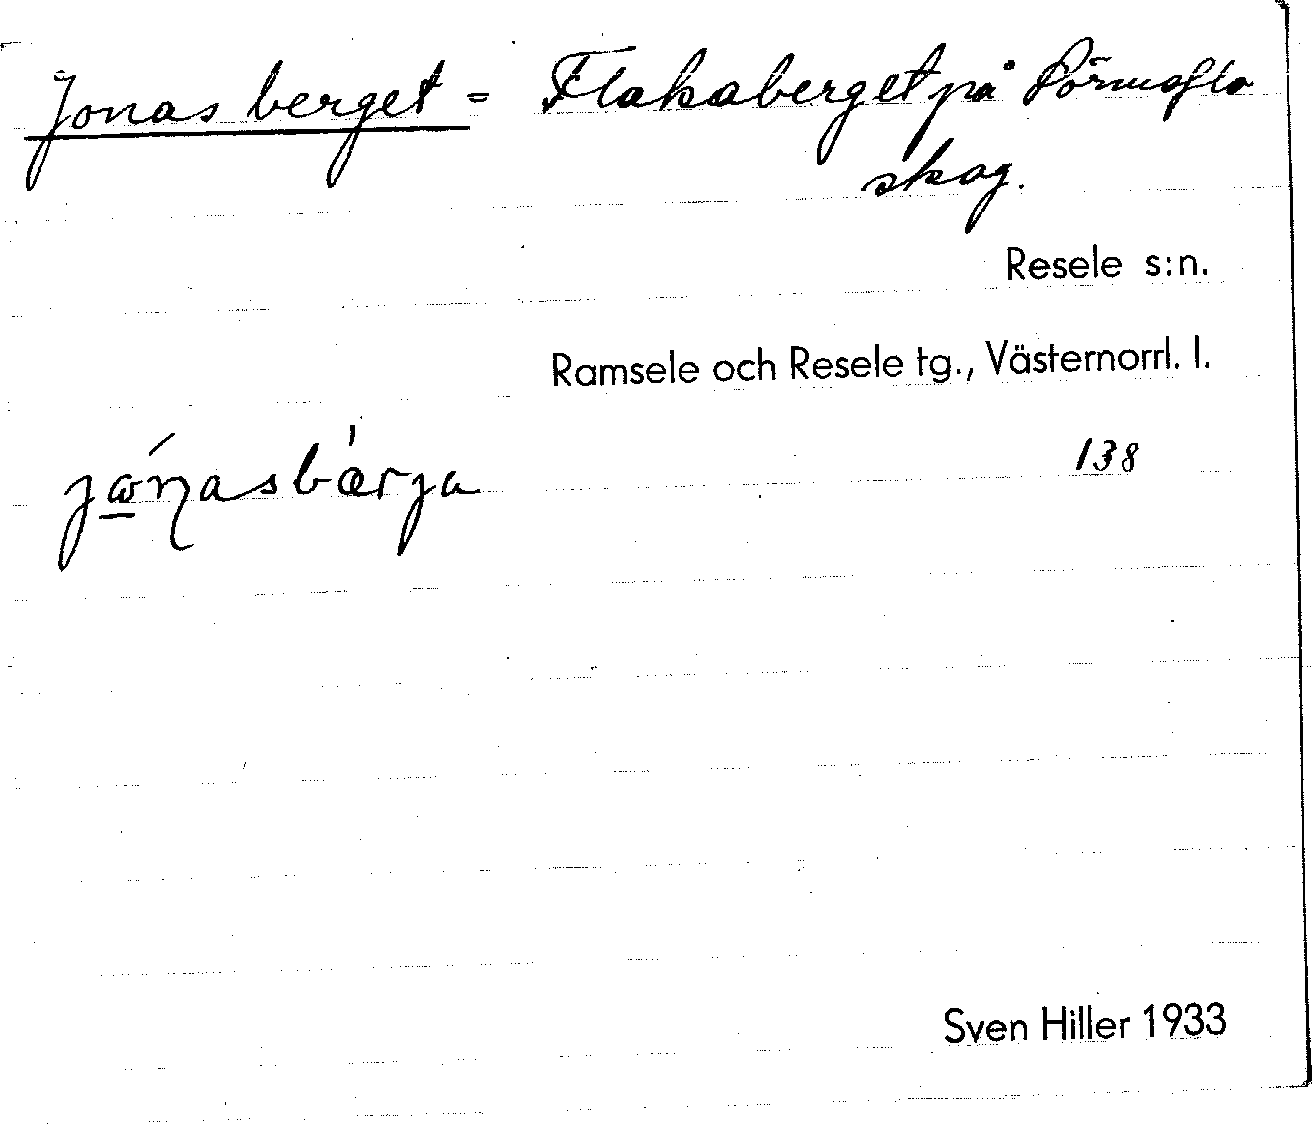 Jonasberget = Flakaberget på
skog.
Resele s:n.
Ramsele och Resele tg., Västernorrl. l.
138
Sven Hiller 1933